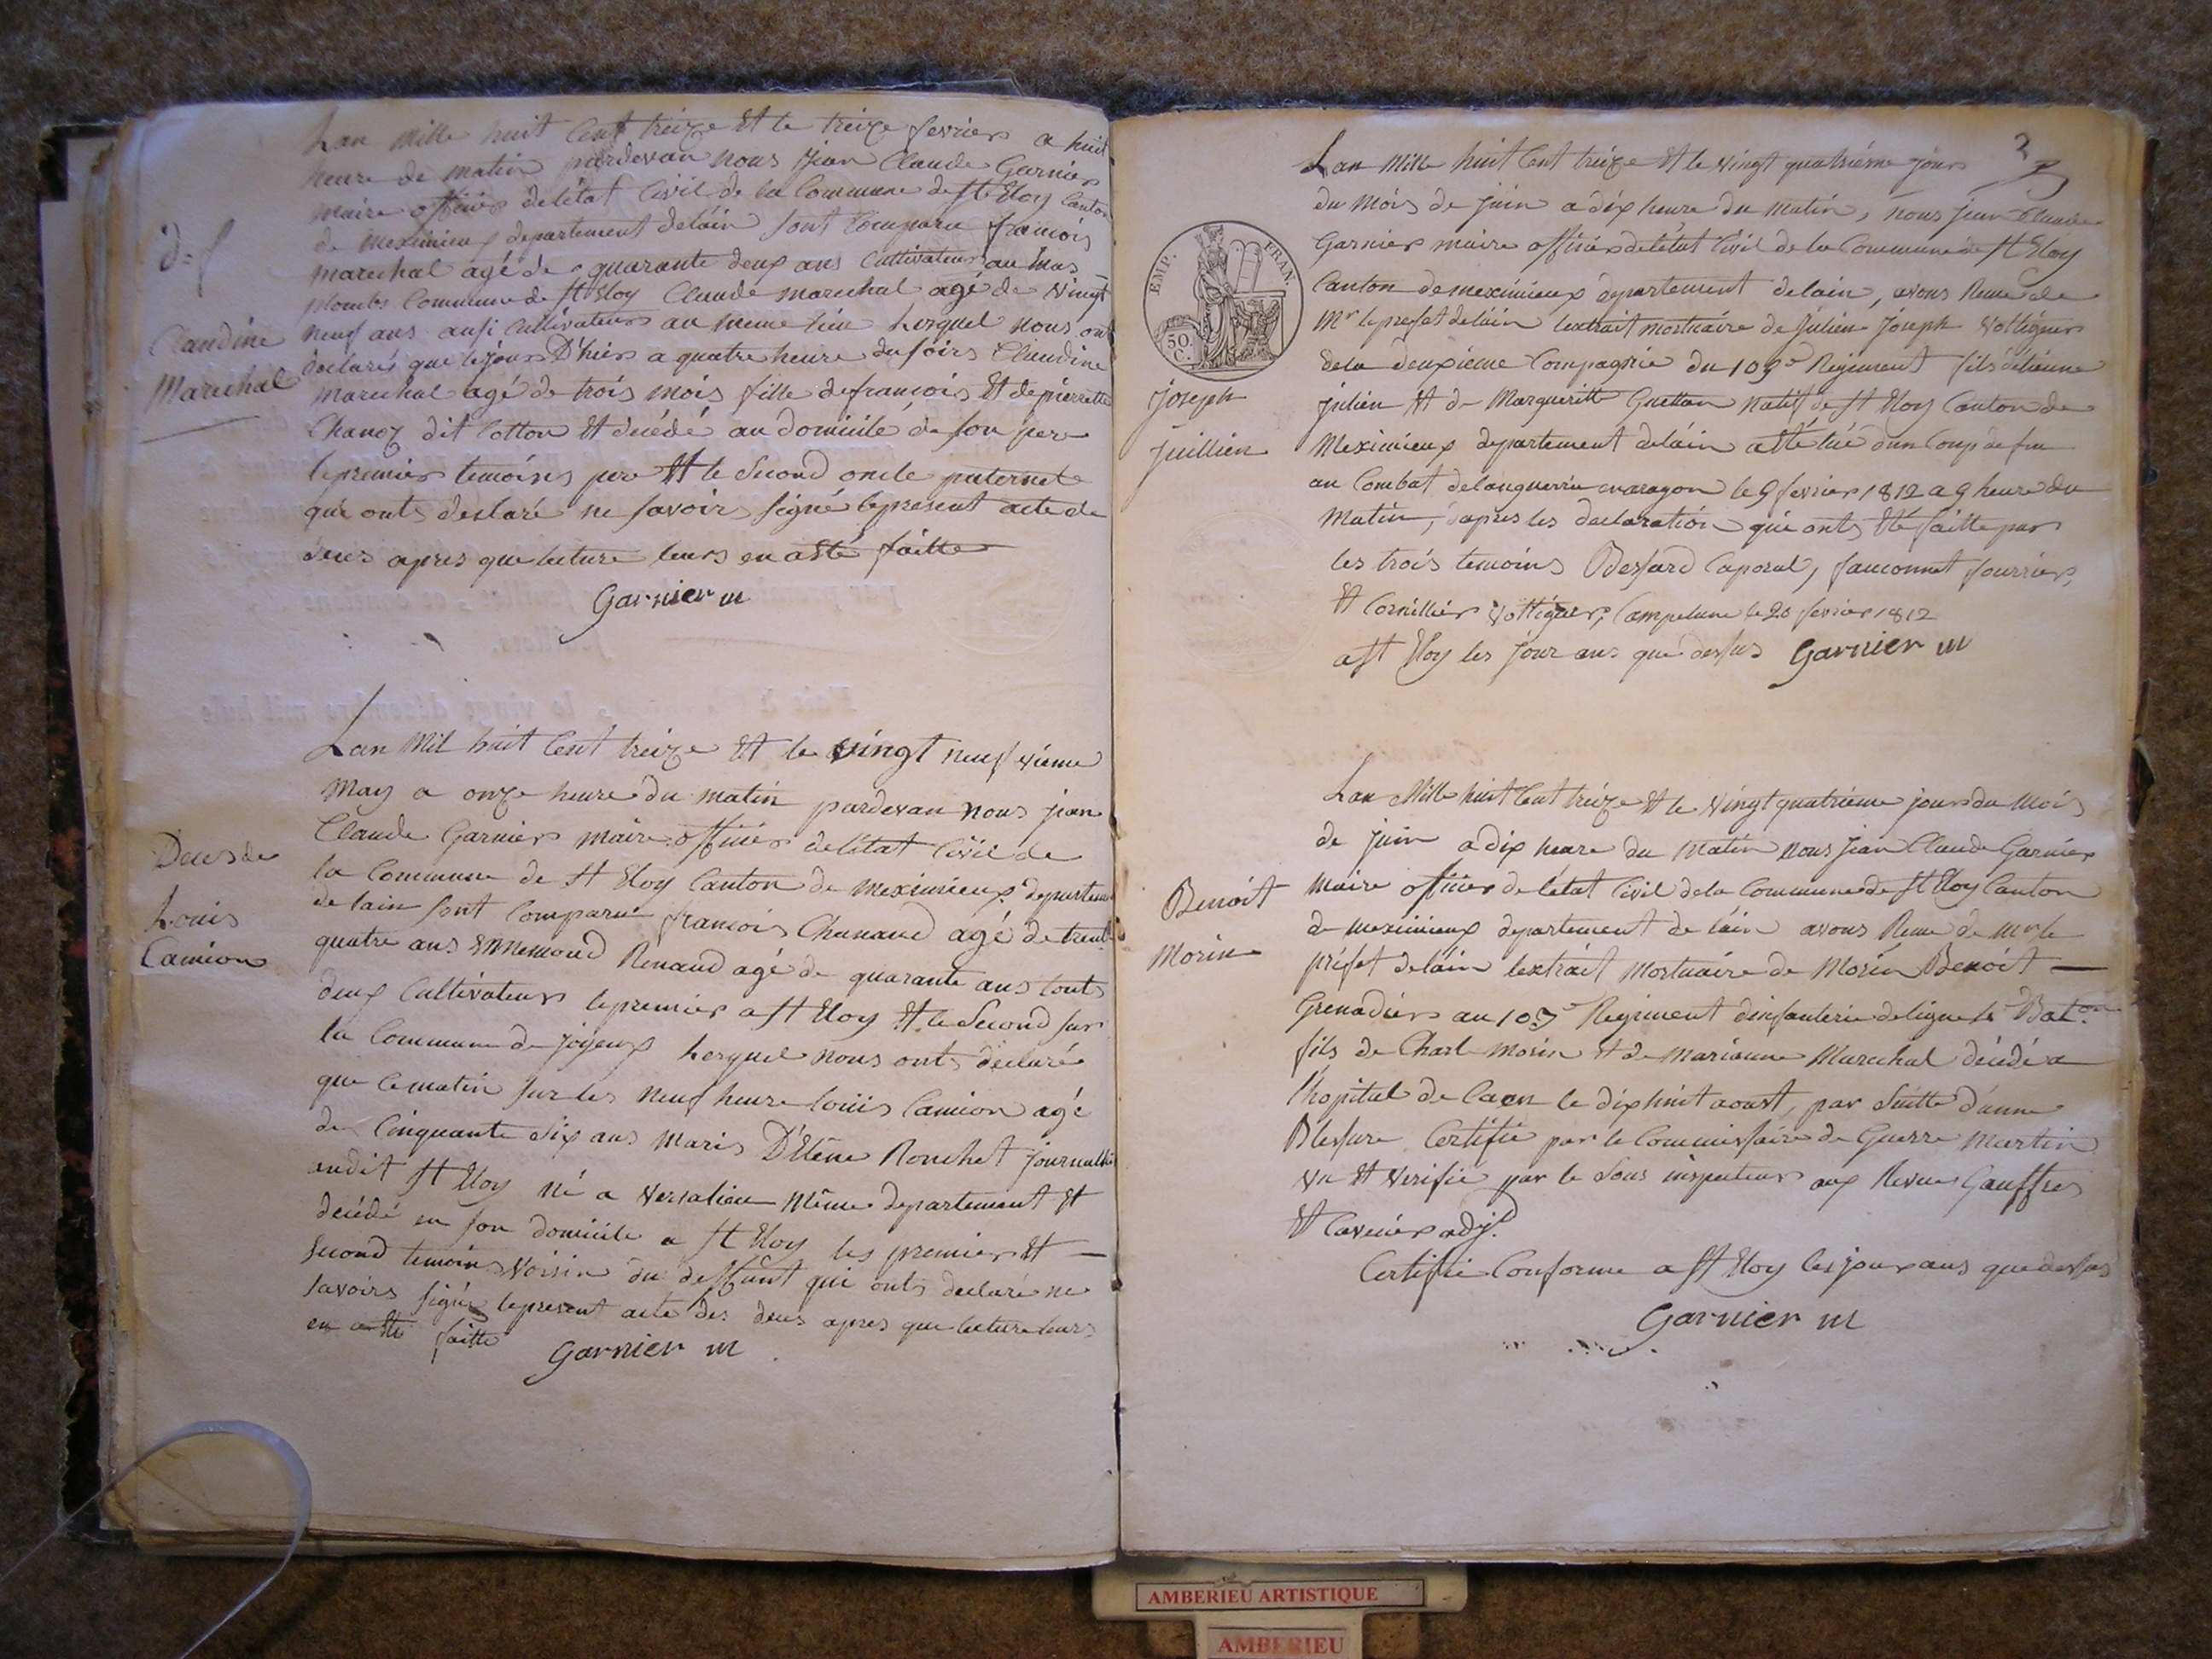 Lan Mille huit Cent treize Et le treize fevrier a huit
heure de matin pardevan nous Jean Claude Garnier
maire officier deletat Civil de la Commune de St Eloy Canton
de meximieux departement delain sont Comparu francois
marechal agé de quarante deux ans Cultivateur au mas
plombs Commune de St Eloy Claude marechal agé de vingt
neuf ans ausi Cultivateur au meme lieu Lesquel nous ont
declarés que le jour D'hier a quatre heure du soirs Claudine
marechal agé de trois mois fille de francois Et de pierrette
Chanoz dit Cotton Et décédé au domicile de son pere
le premier temoins pere Et le Second oncle paternele
qui onts declaré ne savoir signé le present acte de
deces apres que lecture leurs en a Eté faitte
Garnier m
d=f
Claudine
Marechal
Lan Mil huit Cent treize Et le vingt neuf vieme
May a onze heure du matin pardevan nous jean
Claude Garnier maire officier deletat Civil de
la Commune de St Eloy Canton de meximieux departem
de lain sont Comparu francois Chanaud agé de trente
quatre ans Ennemond Renaud agé de quarante ans touts
deux Cultivateur le premier a St Eloy Et le Second sur
la Commune de joyeux Lesquel nous onts declaré
que Ce matin sur les neuf heure Louis Camion agé
de Cinquante six ans Maris D'Elene Rouchet journallié
audit St Eloy né a versalieu même departement Et
decedé en son domicile a St Eloy les premier Et
Second temoins voisin du deffunt qui onts declaré ne
savoirs signés le present acte des deces apres que lecture leurs
en a Eté faitte Garnier m
Deces de
Louis
Camion
3
Lan Mille huit Cent treize Et le vingt quatriéme jour
du Mois de juin a dix heure du matin, nous jean Claude
Garnier maire officier deletat Civil de la Commune de St Eloy
Canton de meximieux departement delain, avons Recue de
Mr le prefet delain lextrait mortuaire de Julien Joseph voltigeur
dela deuxieme Compagnie du 103e Regiment fils d'étienne
julien Et de Margueritte Guettan natif de St Eloy Canton de
Meximieux departement delain a Eté tué dun Coup de feu
au Combat delanguerrin en aragon le 9 fevrier 1812 a 9 heure du
Matin, dapres les declaration qui onts Eté faitte par
les trois temoins Bessard Caporal, fauconnet fourrier,
Et Cornillier voltigeur, Campelune le 20 fevrier 1812
a St Eloy les jour ans que dessus Garnier m
EMP. FRAN.
50.
C.
Joseph
Juillien
Lan Mille huit Cent treize Et le vingt quatrieme jour du Mois
de juin a dix heure du Matin nous Jean Claude Garnier
Maire officier de létat Civil dela Commune de St Eloy Canton
de meximieux departement de lain avons Recue de mr le
préfet delain lextrait Mortuaire de Morin Benoit
Grenadier au 103e Regiment dinfanterie de ligne Bat.on
fils de Charl Morin Et de marianne Marechal décédé a
lhopital de Caen le dix huit aoust, par Suitte d'une
Blessure Certifié par le Commissaire de Guerre Martin
Vu Et verifié par le Sous inspecteur aux Revue Gauffres
Et Cavenier adj.
Certifié Conforme a St Eloy les jour ans que dessus
Garnier m
Benoit
Morin
AMBERIEU ARTISTIQUE
AMBERIEU